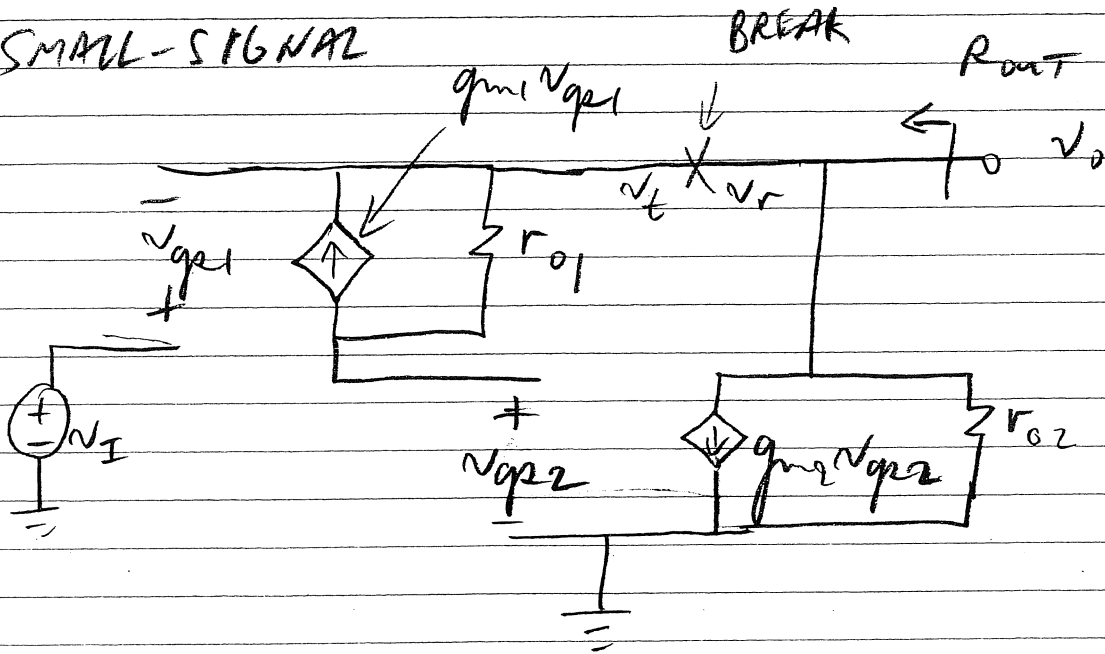 SMALL-SIGNAL
BREAK
ROUT
gm1vgs1
vo
vt
vr
-
vgs1
+
ro1
+
-
vI
+
vgs2
-
gm2vgs2
ro2